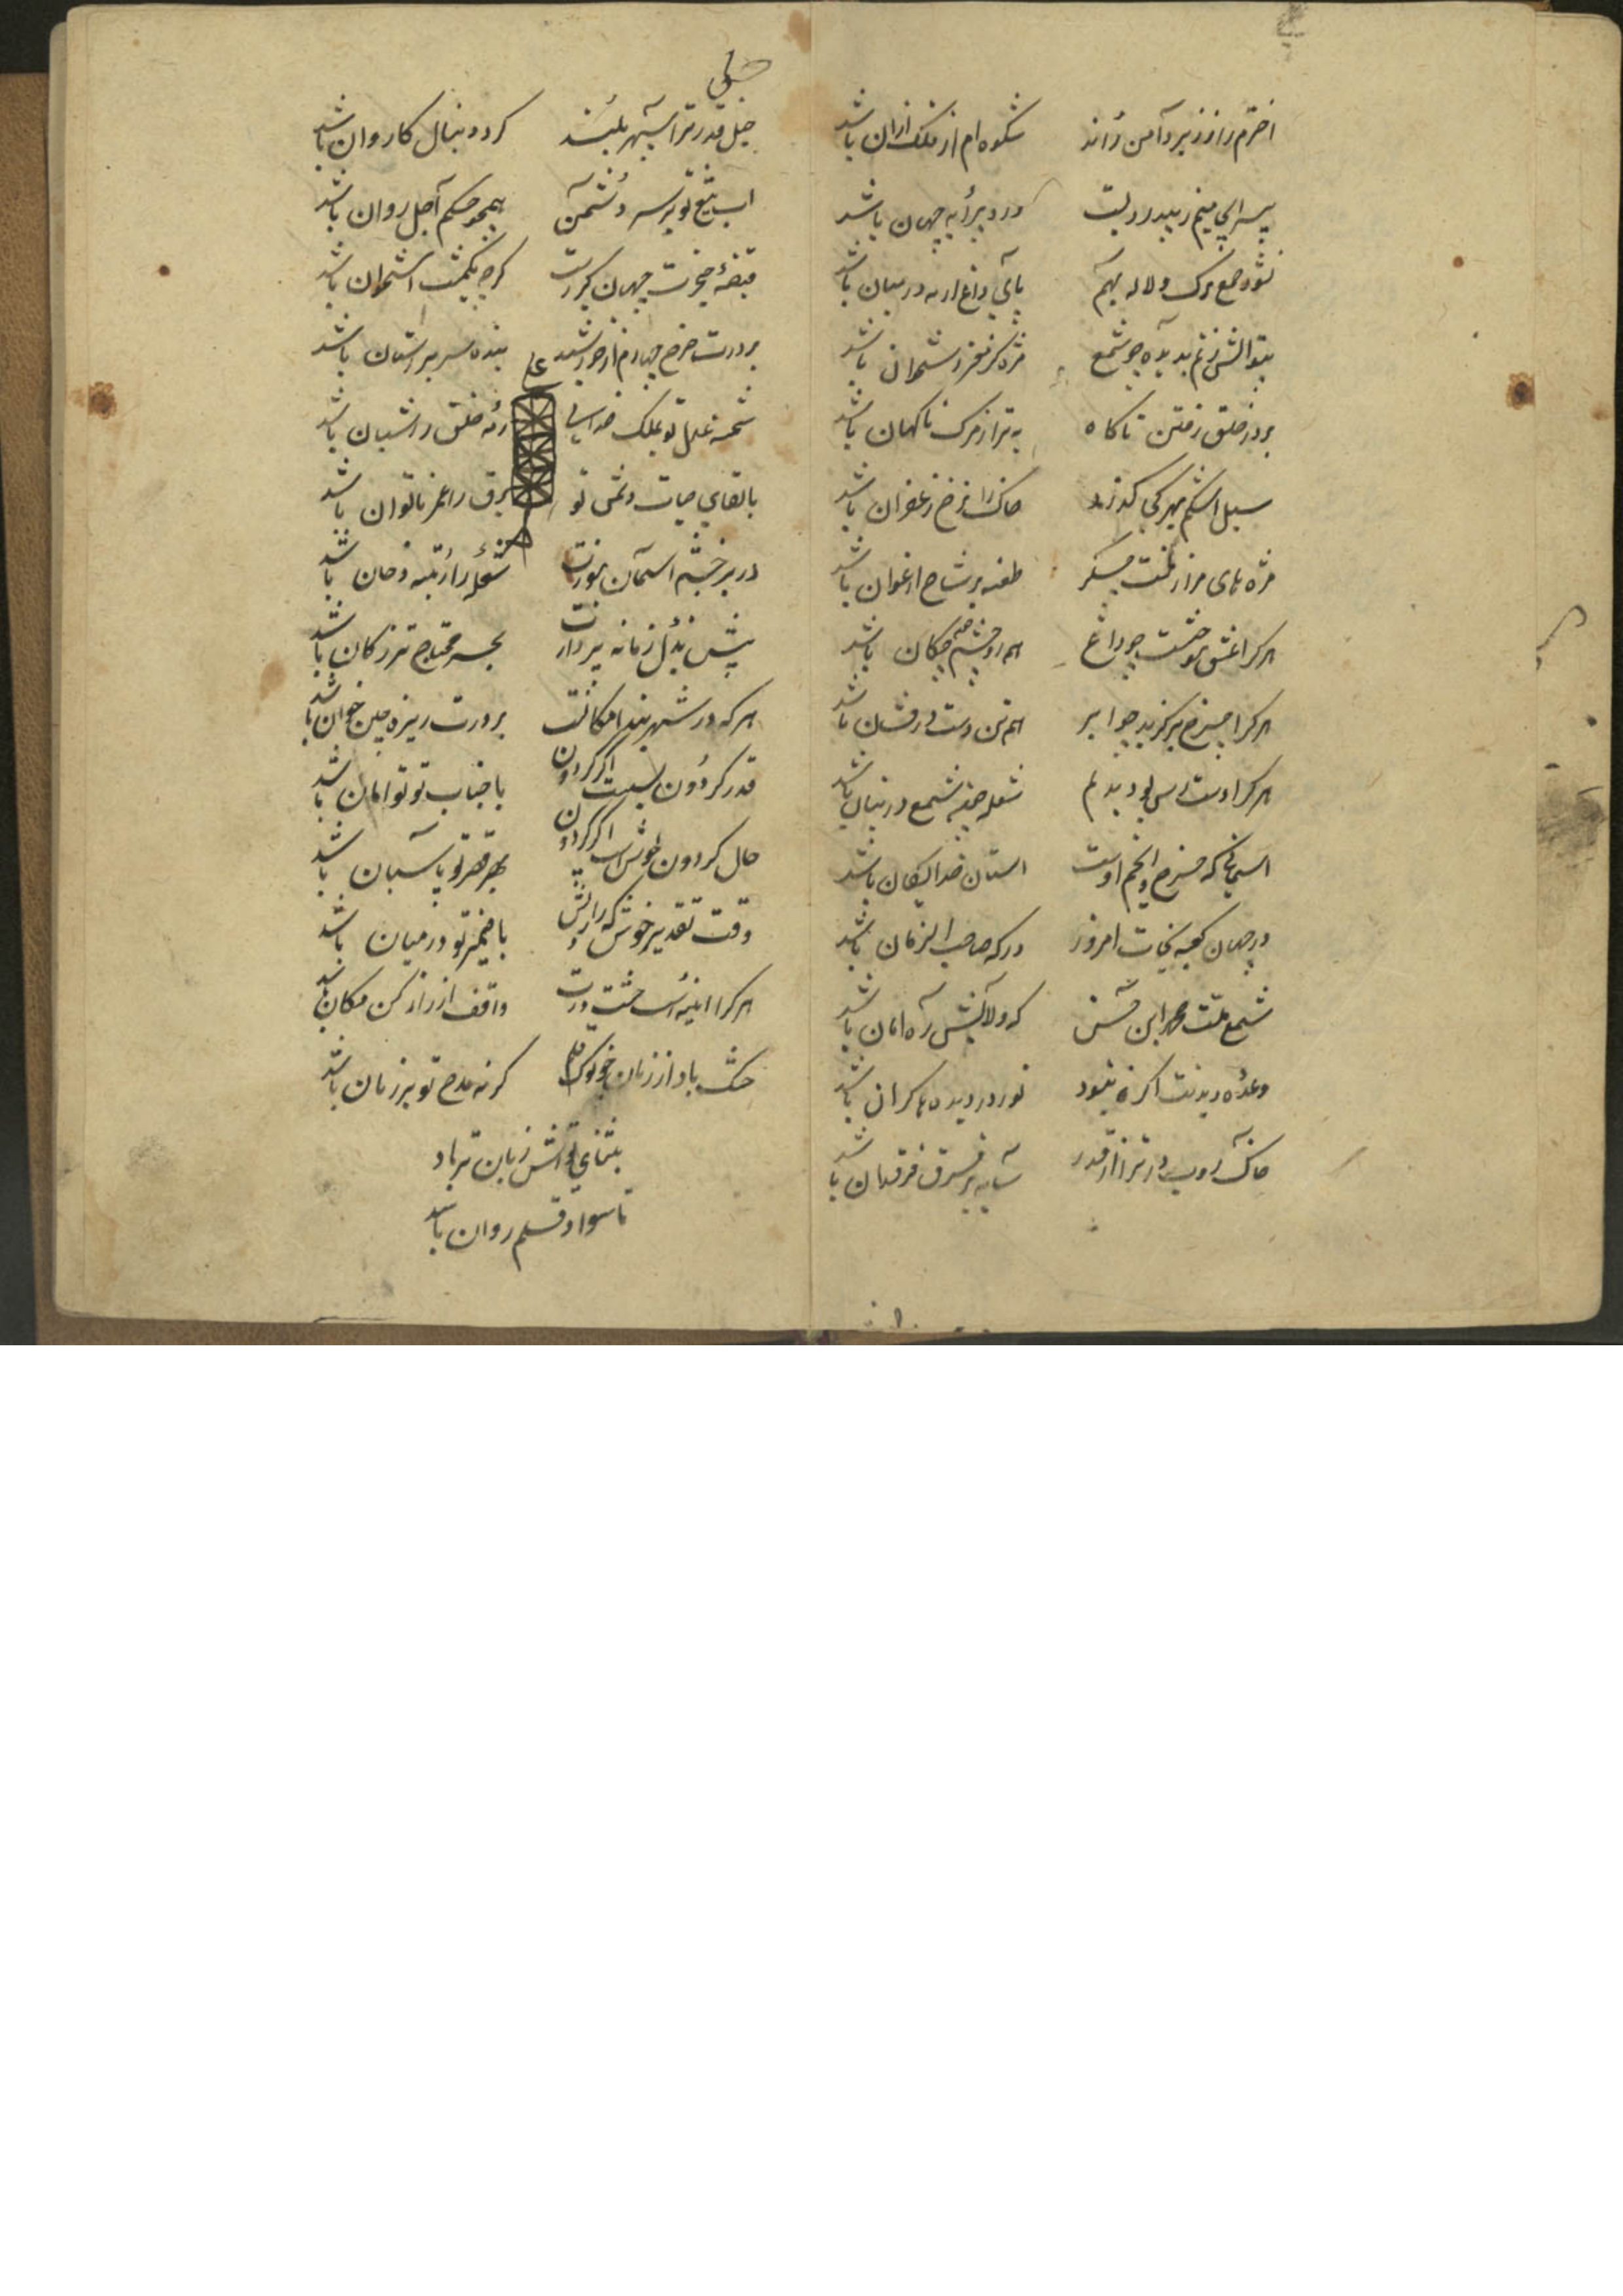 اخترم را ز زیر دامن راند شکوه ام از فلک ازان باشد
درد پیرایه جهان باشد
نشود جمع برک و لاله بهم پای داغ ار نه درمیان باشد
بتو آتش زنم بدیده چو شمع مژه کز مغز استخوان باشد
بر در خلق رفتن ناکاه بتر از مرک ناکهان باشد
سیل اشکم بهر کجا کذرد خاک را رخ زعفران باشد
مژه های مرا ز لخت جکر طعنه بر شاخ ارغوان باشد
هر کرا عشق سوخت چو داغ همه رو چشم خونچکان باشد
هر کرا چرخ برکزید چو ابر همه تن دست درفشان باشد
هر کرا دست رس بود بدلم شعله چون شمع در بنان باشد
آسمانی که چرخ و انجم اوست آستان خدایکان باشد
در جهان کعبه نجات امروز درکه صاحب الزمان باشد
شمع ملت محمد ابن حسن که ولایش ره امان باشد
وعده دیدنت اکر نبود نور در دیده ها کران باشد
خاک روب در ترا از قدر سایه بر فرق فرقدان باشد
خیل قدر ترا سپهر بلند کرد دنبال کاروان باشد
آب تیغ تو بر سر دشمن همچو حکم اجل روان باشد
قبضه خنجرت جهان کیرست کرچه یکمشت استخوان باشد
بر درت چرخ چارم از خورشید بنده سر بر آستان باشد
شحنه عدل تو بملک خدای رمه خلق را شبان باشد
با بقای حیات دشمن تو برق را عمر ناتوان باشد
در بر خشم آسمان سوزت شعله را رتبه دخان باشد
پیش بذل زمانه پردازت بحر محتاج تر ز کان باشد
هر که در شهر بند امکانست بر درت ریزه چین خوان باشد
قدر کردون بسیست اکر کردون با جناب تو توامان باشد
حال کردون خوش است اکر کردون بهر قصر تو پاسبان باشد
وقت تقدیر خوش که رازش با ضمیر تو درمیان باشد
هر کرا آینه است خشت درت واقف از راز کن مکان باشد
خشک باد از زبان چو نوک قلم کر نه مدح تو بر زبان باشد
بثنای تواش زبان تر باد
تا سواد قلم روان باشد